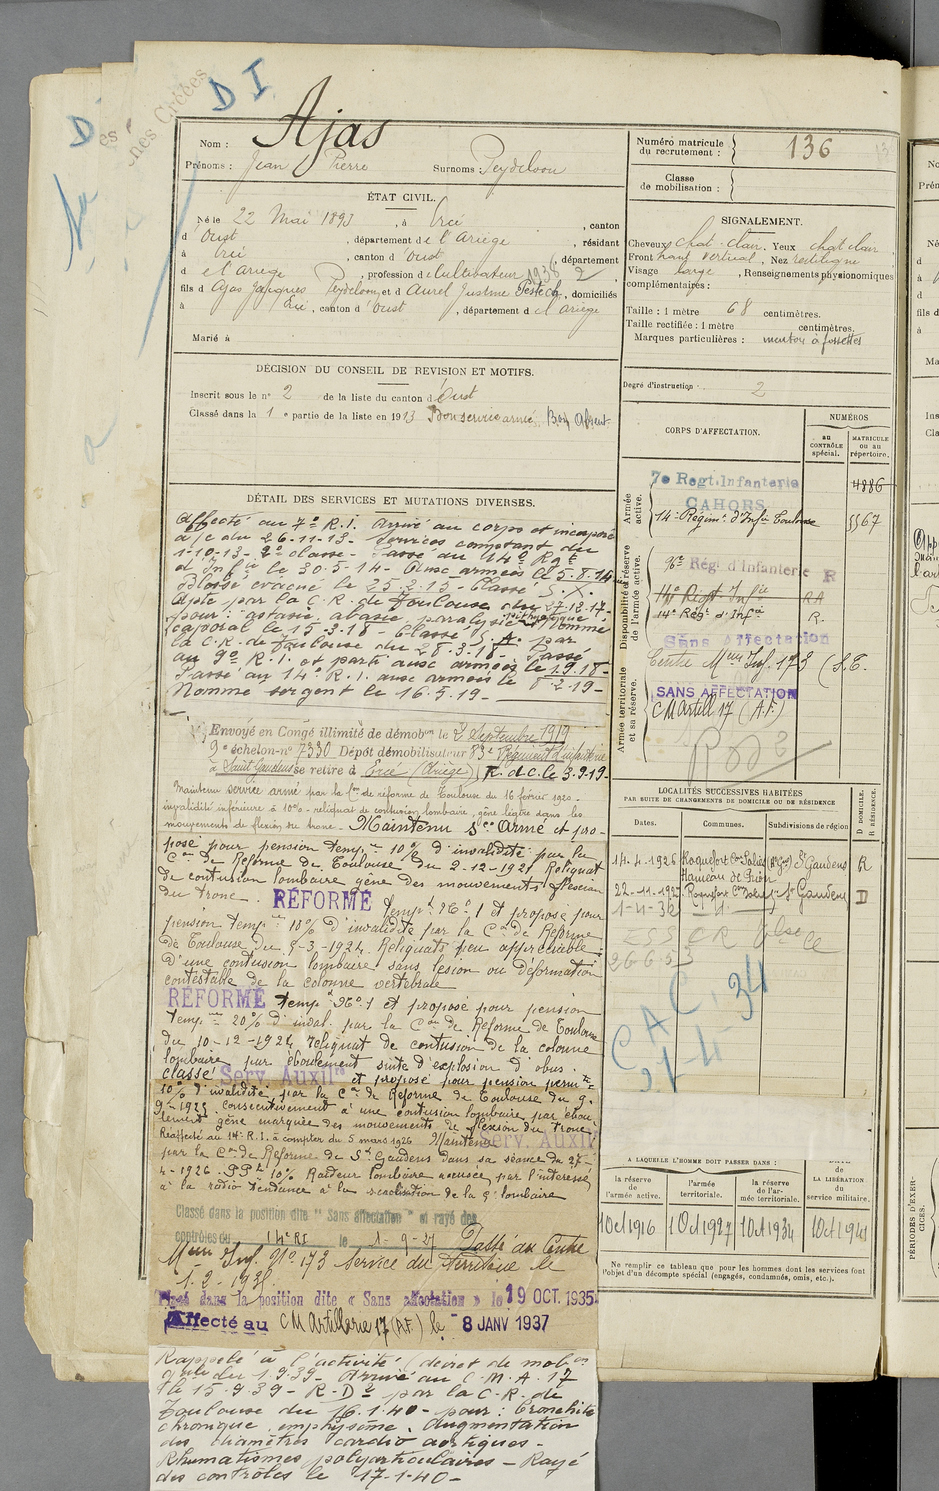 D I
D
Nom : Ajas
Prénoms : Jean Pierre Surnoms : Peydeloou
Numéro matricule du recrutement : 136
Classe de mobilisation :
ÉTAT CIVIL.
Né le 22 Mai 1893, à Ercé, canton
d'Oust, département de l'Ariège, résidant
à Ercé, canton d'Oust, département
d et Ariège, profession de Cultivateur
fils d Ajas Jacques Peydeloou, et d Aurel Justine Pestech, domiciliés
à Ercé, canton d'Oust, département d el Ariège
Marié à
SIGNALEMENT.
Cheveux chat-clair. Yeux chat clair
Front haut vertical, Nez rectiligne
Visage large, Renseignements physionomiques
complémentaires :
Taille : 1 mètre 68 centimètres.
Taille rectifiée : 1 mètre centimètres.
Marques particulières : menton à fossettes
DÉCISION DU CONSEIL DE REVISION ET MOTIFS.
Inscrit sous le n° 2 de la liste du canton d'Oust
Classé dans la 1e partie de la liste en 1913 Bon service armé. Bon Absent
Degré d'instruction 2
CORPS D'AFFECTATION.
NUMÉROS
au CONTRÔLE spécial.
MATRICULE ou au répertoire.
Armée active.
7e Regt. Infanterie 4886
CAHORS
14e Régim. d'Infie Toulouse 5567
Disponibilité et réserve de l'armée active.
Regt d'Infanterie R
14e Regt Infie RA
14e Régt d'Infie R.
Sans Affectation
Armée territoriale et sa réserve.
Centre Meum Inf. 173 (S.T.
SANS AFFECTATION
CM Artill 17 (A.F.)
DÉTAIL DES SERVICES ET MUTATIONS DIVERSES.
Affecté au 7e R.I. Arrivé au corps et incorporé
à/c du 26-11-13- Services comptant du
1-10-13- 2e classe- Passé au 14e Rgt
d'Infie le 30.5-14- Aux armées le 5.8.14
Blessé évacué le 25.2.15- Classé S.X.
Apte par la C.R. de Toulouse du 27-12-17-
Caporal le 15-3-18- Classé S.A. par
la C.R. de Toulouse du 28-3-18- Passé
au 9e R.I. et parti aux armées le 1.9.18-
Passé au 14e R.I. aux armées le 8-2-19-
Nommé sergent le 16.5.19-
Envoyé en Congé illimité de démobon le 2 Septembre 1919
9e échelon-n° 7330 Dépôt démobilisateur 83e Régiment d'infanterie
à Saint Gaudens se retire à Ercé (Ariège) R.d.c. le 3.9.19-
Maintenu service armé par la Con de réforme de Toulouse du 16 février 1920-
invalidité inférieure à 10%- reliquat de contusion lombaire, gêne légère dans les
mouvements de flexion du tronc- Maintenu Sce Armé et pro-
posé pour pension tempre 10% d'invalidité par la
Con de Réforme de Toulouse du 2-12-1921 Reliquat
de contusion lombaire gêne des mouvements flexion
du tronc. RÉFORMÉ Tempre N° 1 et proposé pour
pension tempre 10% d'invalidité par la Con de Réforme
de Toulouse du 8-3-1924. Reliquats peu appréciable
d'une contusion lombaire sans lésion ou déformation
contestable de la colonne vertébrale
RÉFORMÉ Tempre N° 1 et proposé pour pension
Tempre 20% d'inval. par la Con de Réforme de Toulouse
du 10-12-1924 reliquat de contusion de la colonne
lombaire par éboulement suite d'explosion d'obus.
Classé Serv. Auxilre et proposé pour pension perm te
10% d'invalidité par la Con de Réforme de Toulouse du 9.
9-1925 Consécutivement à une contusion lombaire par ébou-
lement gêne marquée des mouvements de flexion du tronc
Réaffecté au 14e R.I. à compter du 5 mars 1926 Maintenu Serv. Auxil
par la Con de Réforme de St Gaudens dans sa séance du 27-
4-1926. PPte 10% Raideur lombaire accusée par l'intéressé
à la radio tendance à la scalisation de la 5e lombaire
Classé dans la position dite "Sans affectation" et rayé des
contrôles du 14e RI le 1-9-27 Passé au Centre
Meum Inf. N° 173 Service du Territoire le
Placé dans la position dite « Sans affectation » le 19 OCT. 1935
Affecté au CM Artillerie 17 (A.F.) le 8 JANV 1937
Rappelé à l'activité (décret de mobon
gale du 1.9.39- Arrivé au C.M.A. 17
le 15.9.39- R.D.2 par la C.R. de
Toulouse du 16.1.40- pour : Bronchite
chronique, emphysème. Augmentation
des diamètres cardio aortiques-
Rhumatismes polyarticulaires- Rayé
des contrôles le 17-1-40-
LOCALITÉS SUCCESSIVES HABITÉES
PAR SUITE DE CHANGEMENTS DE DOMICILE OU DE RÉSIDENCE
Dates. Communes. Subdivisions de région D DOMICILE. R RÉSIDENCE.
14-4-1926 Roquefort Con Salies (Hte Gne) St Gaudens R
22-11-1927 Roquefort Con Salies St Gaudens D
1-4-32
CAC
A LAQUELLE L'HOMME DOIT PASSER DANS :
la réserve de l'armée active.
l'armée territoriale.
la réserve de l'armée territoriale.
DATE de LA LIBÉRATION du service militaire.
1 Oct 1916 1 Oct 1927 1 Oct 1934 1 Oct 1941
Ne remplir ce tableau que pour les hommes dont les services font
l'objet d'un décompte spécial (engagés, condamnés, omis, etc.).
PÉRIODES D'EXERCICES.